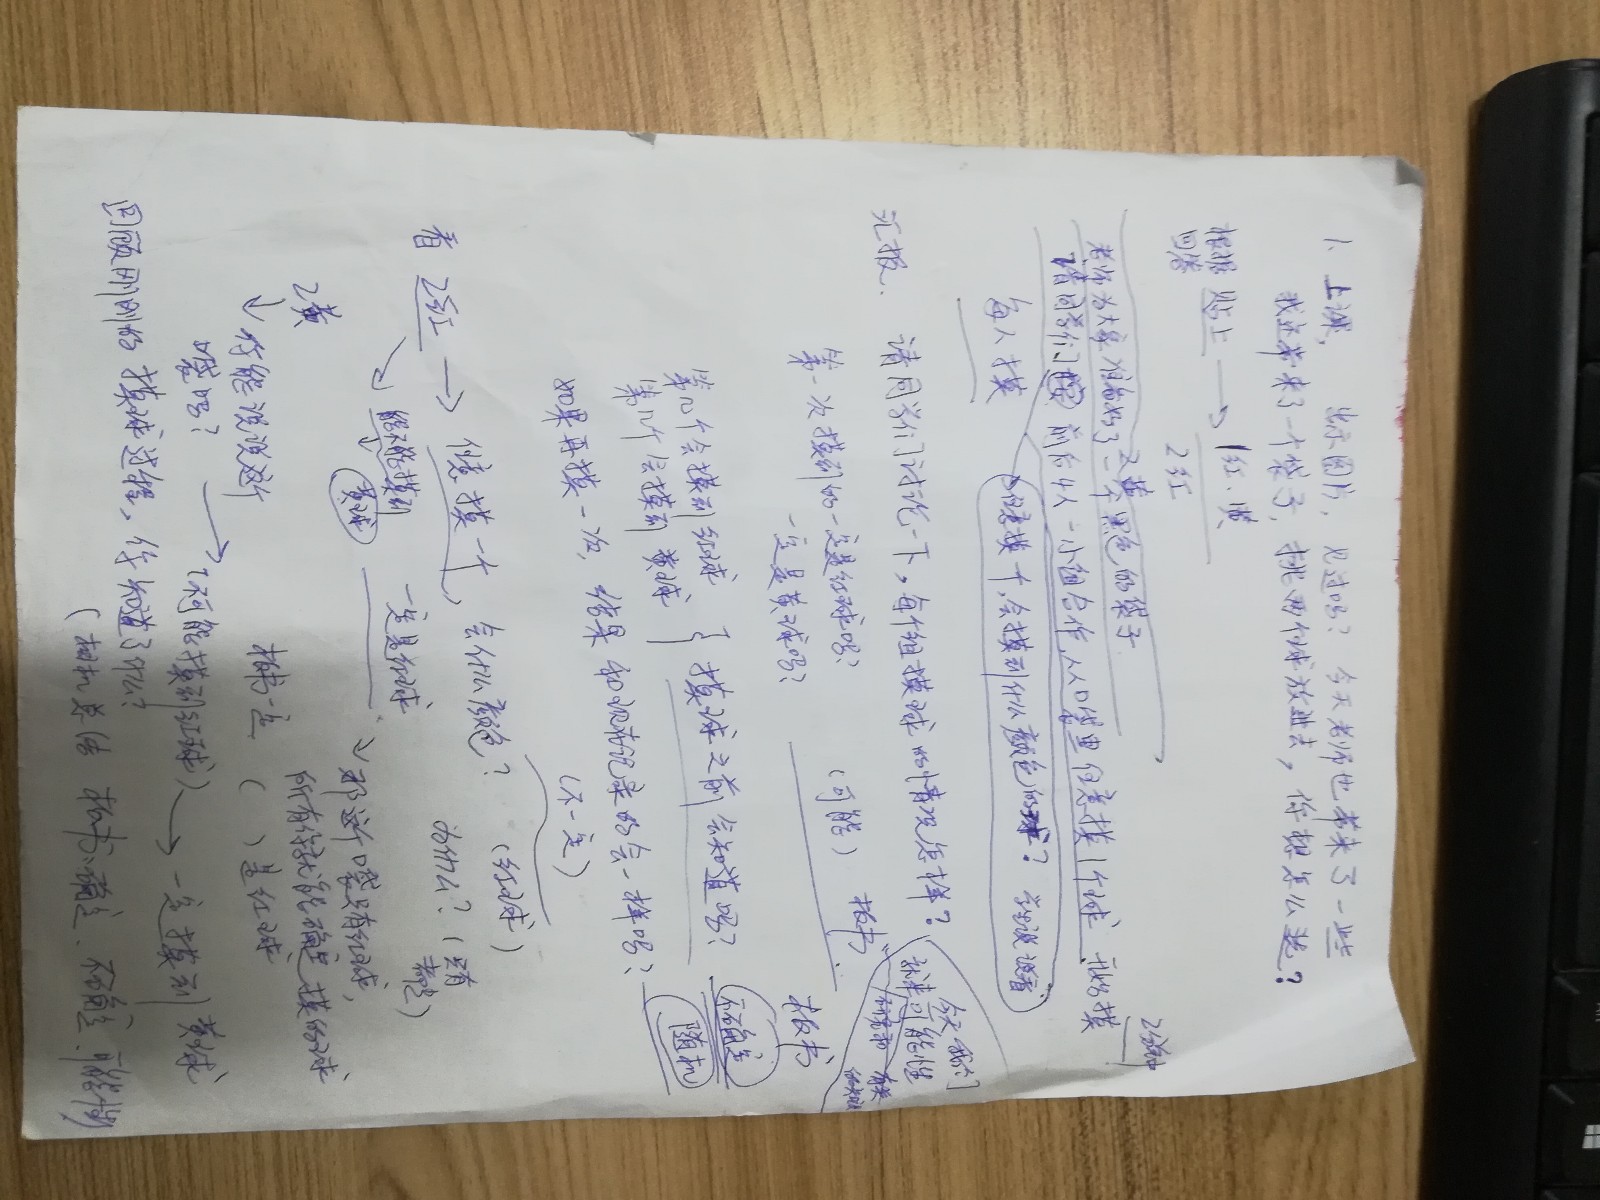 1. 上课, 出示图片, 见过吗? 今天老师也带来了一些
我还带来了一个袋子, 挑两个球放进去, 你想怎么选?
根据回答 贴上 → 1红.1黄
2红
2黄
老师为大家准备好了一个黑色的袋子 2分钟
请同学们 前后4人一小组合作,从口袋里任意摸1个球 开始摸
每人摸 任意摸一个,会摸到什么颜色的球? 学生说说看
汇报. 请同学们讨论一下,每个组摸球的情况怎样?
今天我们就来研究和有关 可能性
第一次摸到的一定是红球吗?
一定是黄球吗? (可能) 板书
第几个会摸到红球
第几个会摸到黄球 } 摸球之前会知道吗? 板书 不确定
如果再摸一次, 结果和you 随机
(不一定)
看 2红 → 任意摸一个, 会什么颜色? (红球)
能不能摸到黄球 一定是红球 为什么?
那这口袋只有红球,
所有你就能确定摸的球
2黄 → 你能说说这个袋吗? 板书一定 ( ) 是红球
→ 不可能摸到红球 → 一定摸到黄球
回顾刚刚的摸球过程, 你知道了什么?
板书:确定、不确定、可能性